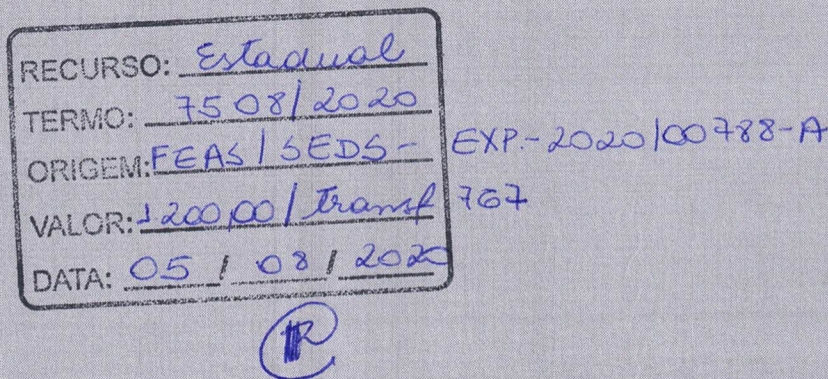 RECURSO: Estadual
TERMO: 7508/2020
ORIGEM: FEAS/SEDS - EXP.-2020/00788-A
VALOR: 1200,00/transf 767
DATA: 05/08/2020
R